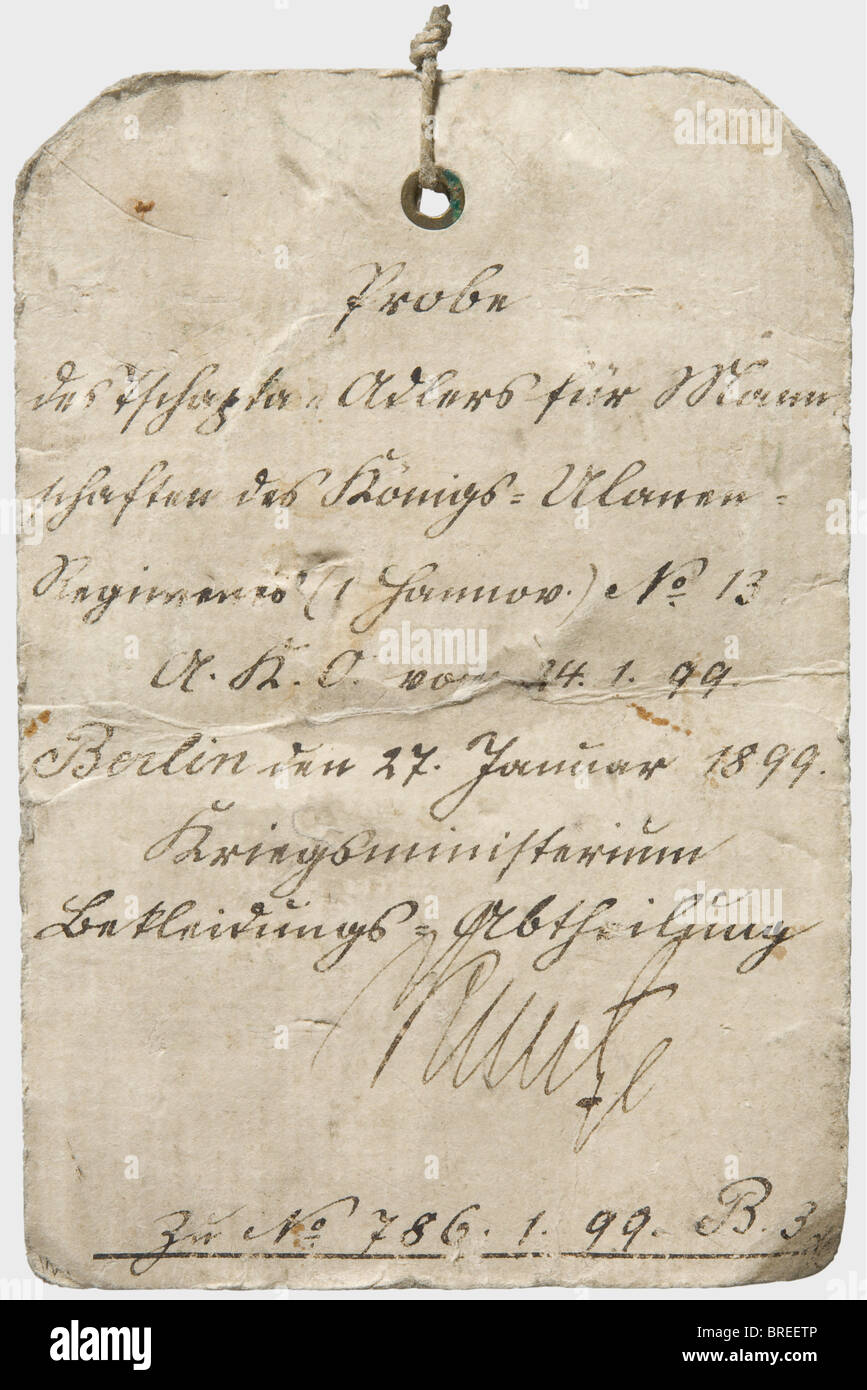 Probe
des Tschapka-Adlers für Mann-
schaften des Königs-Ulanen-
Regiments (1 Hannov.) No 13
A. K. O. vom 24. 1. 99.
Berlin den 27. Januar 1899.
Kriegsministerium
Bekleidungs-Abtheilung
Zu No 786. 1. 99. B. 3.
alamy
Image ID: BREETP
www.alamy.com